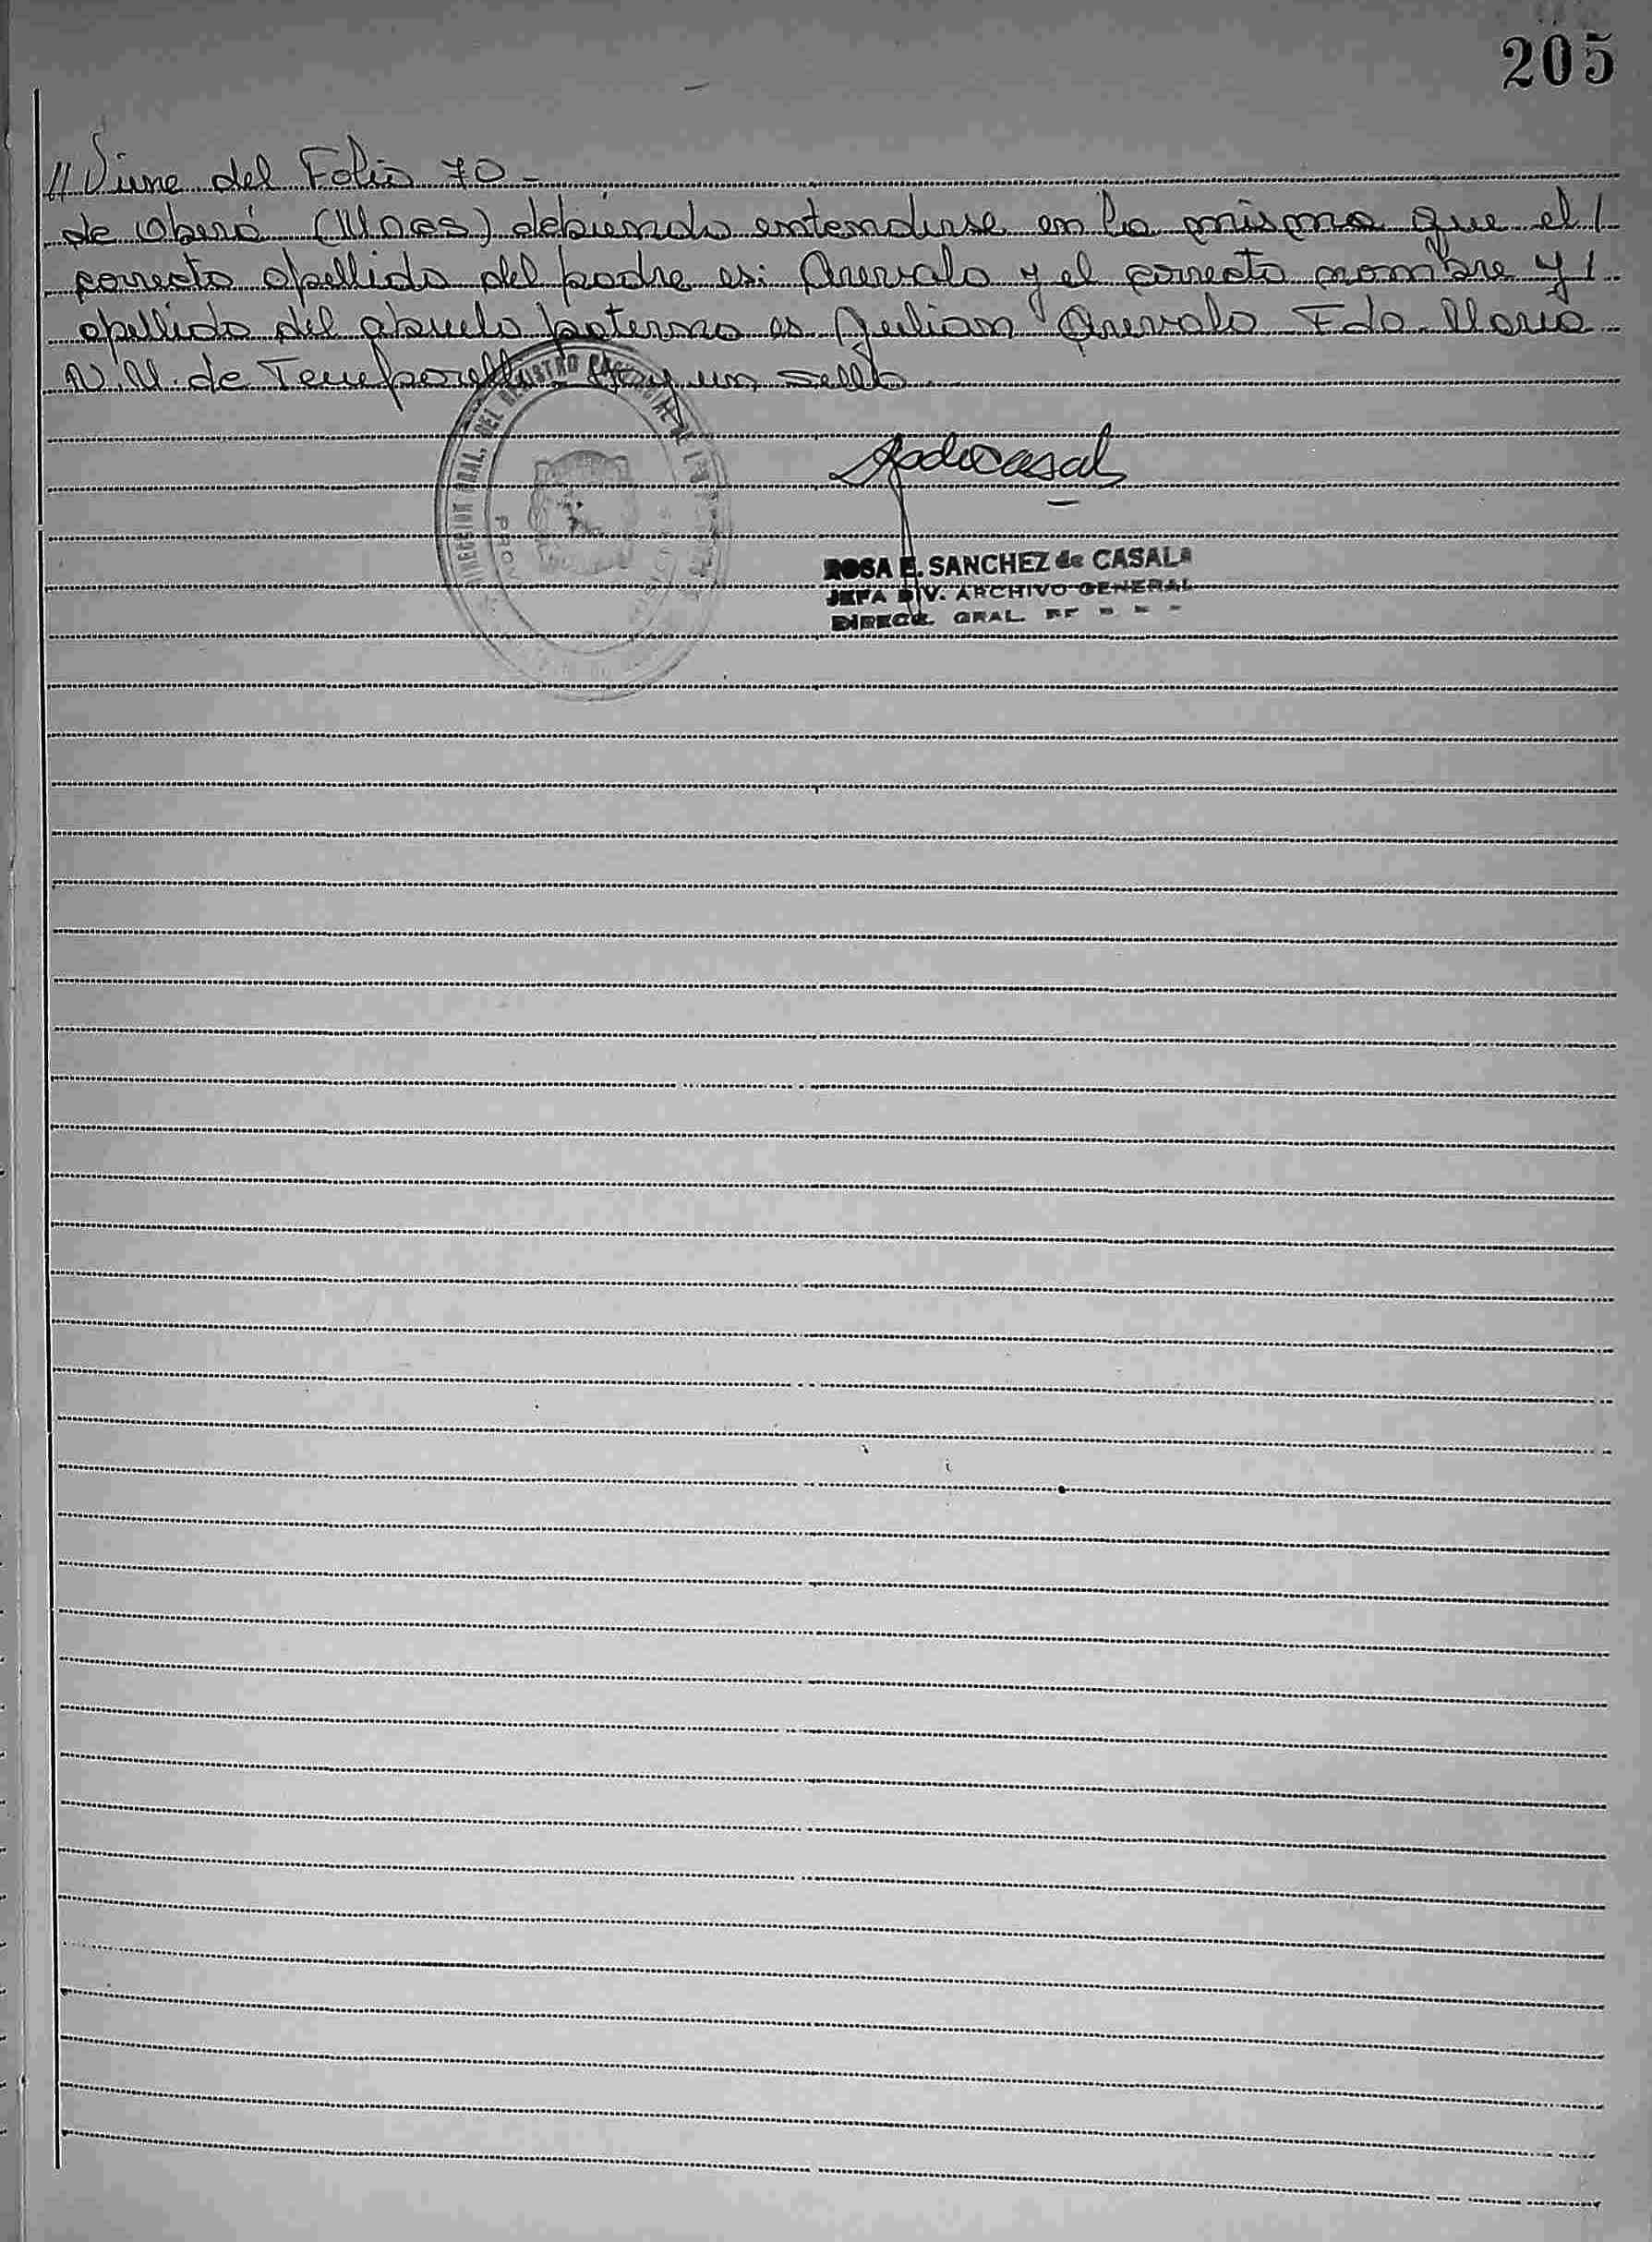 205
// Viene del Folio 70 -
de Oberá (Mnes) debiendo entenderse en la misma que el /
correcto apellido del padre es: Arevalo y el correcto nombre y /
apellido del abuelo paterno es Julian Arevalo Fdo. Maria
N. M. de Hay un sello
DIRECCION GRAL. DEL REGISTRO PROV
ROSA E. SANCHEZ de CASALS
JEFA DIV. ARCHIVO GENERAL
DIRECC. GRAL.